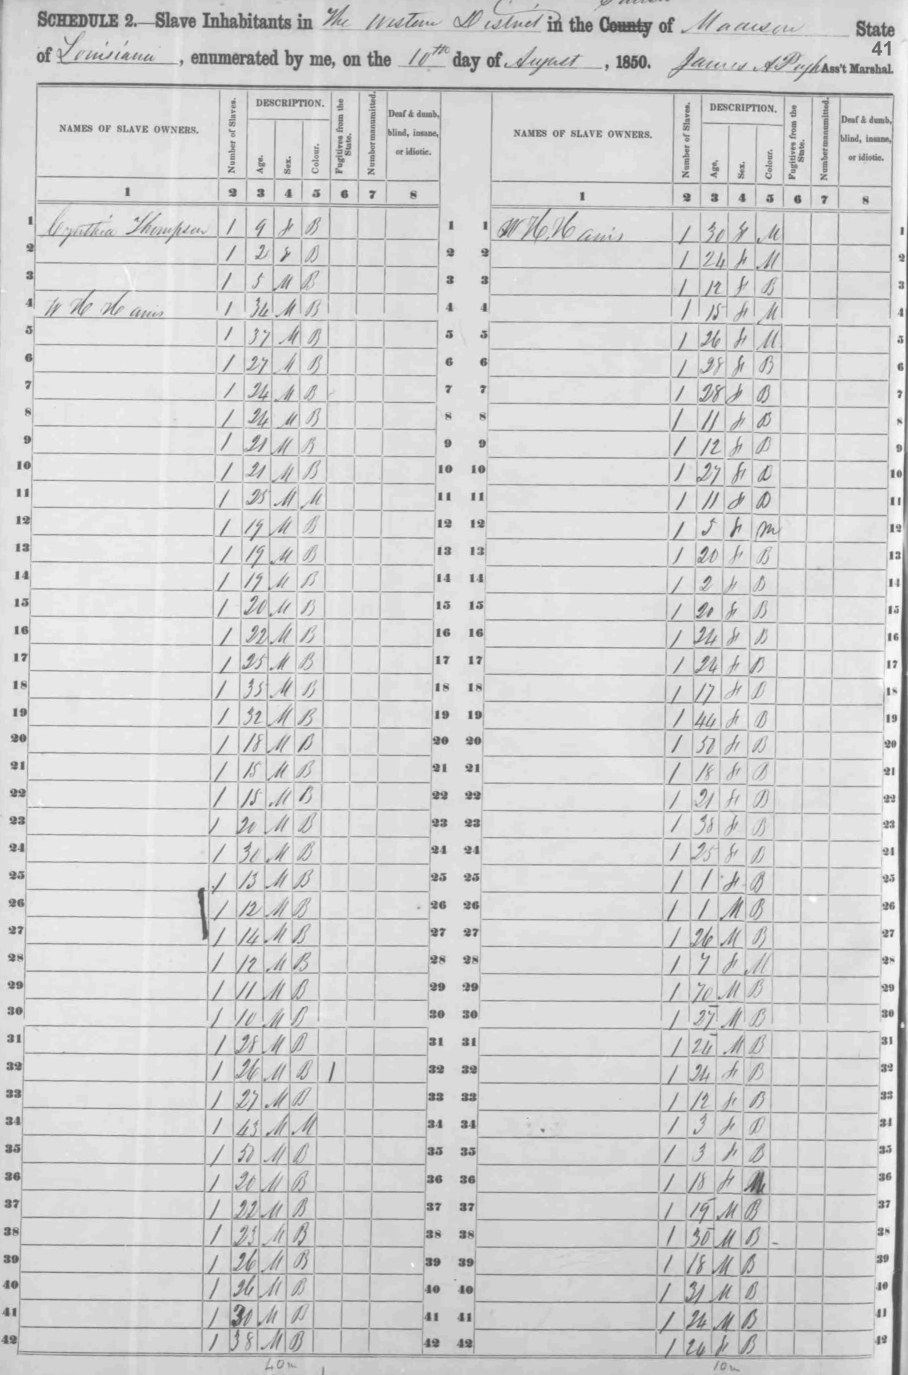 SCHEDULE 2.—Slave Inhabitants in The Western District in the County of Madison State
41
of Louisiana, enumerated by me, on the 10th day of August, 1850. James A Pugh Ass't Marshal.
NAMES OF SLAVE OWNERS. Number of Slaves. DESCRIPTION. Age. Sex. Colour. Fugitives from the State. Number manumitted. Deaf & dumb, blind, insane, or idiotic. NAMES OF SLAVE OWNERS. Number of Slaves. DESCRIPTION. Age. Sex. Colour. Fugitives from the State. Number manumitted. Deaf & dumb, blind, insane, or idiotic.
1 2 3 4 5 6 7 8 1 2 3 4 5 6 7 8
1 Cynthia Thompson 1 9 f B 1 1 W H Harris 1 30 f M 1
2 1 2 f B 2 2 1 24 f M 2
3 1 5 M B 3 3 1 12 f B 3
4 W H Harris 1 34 M B 4 4 1 15 f M 4
5 1 37 M B 5 5 1 26 f M 5
6 1 27 M B 6 6 1 28 f B 6
7 1 24 M B 7 7 1 28 f B 7
8 1 24 M B 8 8 1 11 f B 8
9 1 21 M B 9 9 1 12 f B 9
10 1 21 M B 10 10 1 27 f B 10
11 1 25 M M 11 11 1 11 f B 11
12 1 19 M B 12 12 1 5 f M 12
13 1 19 M B 13 13 1 20 f B 13
14 1 19 M B 14 14 1 2 f B 14
15 1 20 M B 15 15 1 20 f B 15
16 1 22 M B 16 16 1 24 f B 16
17 1 25 M B 17 17 1 24 f B 17
18 1 35 M B 18 18 1 17 f B 18
19 1 32 M B 19 19 1 44 f B 19
20 1 18 M B 20 20 1 50 f B 20
21 1 15 M B 21 21 1 18 f B 21
22 1 15 M B 22 22 1 21 f B 22
23 1 20 M B 23 23 1 38 f B 23
24 1 30 M B 24 24 1 25 f B 24
25 1 13 M B 25 25 1 1 f B 25
26 1 12 M B 26 26 1 1 M B 26
27 1 14 M B 27 27 1 26 M B 27
28 1 12 M B 28 28 1 7 f M 28
29 1 11 M B 29 29 1 70 M B 29
30 1 10 M B 30 30 1 27 M B 30
31 1 28 M B 31 31 1 24 M B 31
32 1 26 M B 1 32 32 1 24 f B 32
33 1 27 M B 33 33 1 12 f B 33
34 1 43 M M 34 34 1 3 f B 34
35 1 50 M B 35 35 1 3 f B 35
36 1 20 M B 36 36 1 18 f M 36
37 1 22 M B 37 37 1 19 M B 37
38 1 23 M B 38 38 1 30 M B 38
39 1 26 M B 39 39 1 18 M B 39
40 1 26 M B 40 40 1 31 M B 40
41 1 30 M B 41 41 1 24 M B 41
42 1 38 M B 42 42 1 24 f B 42
40m 10m